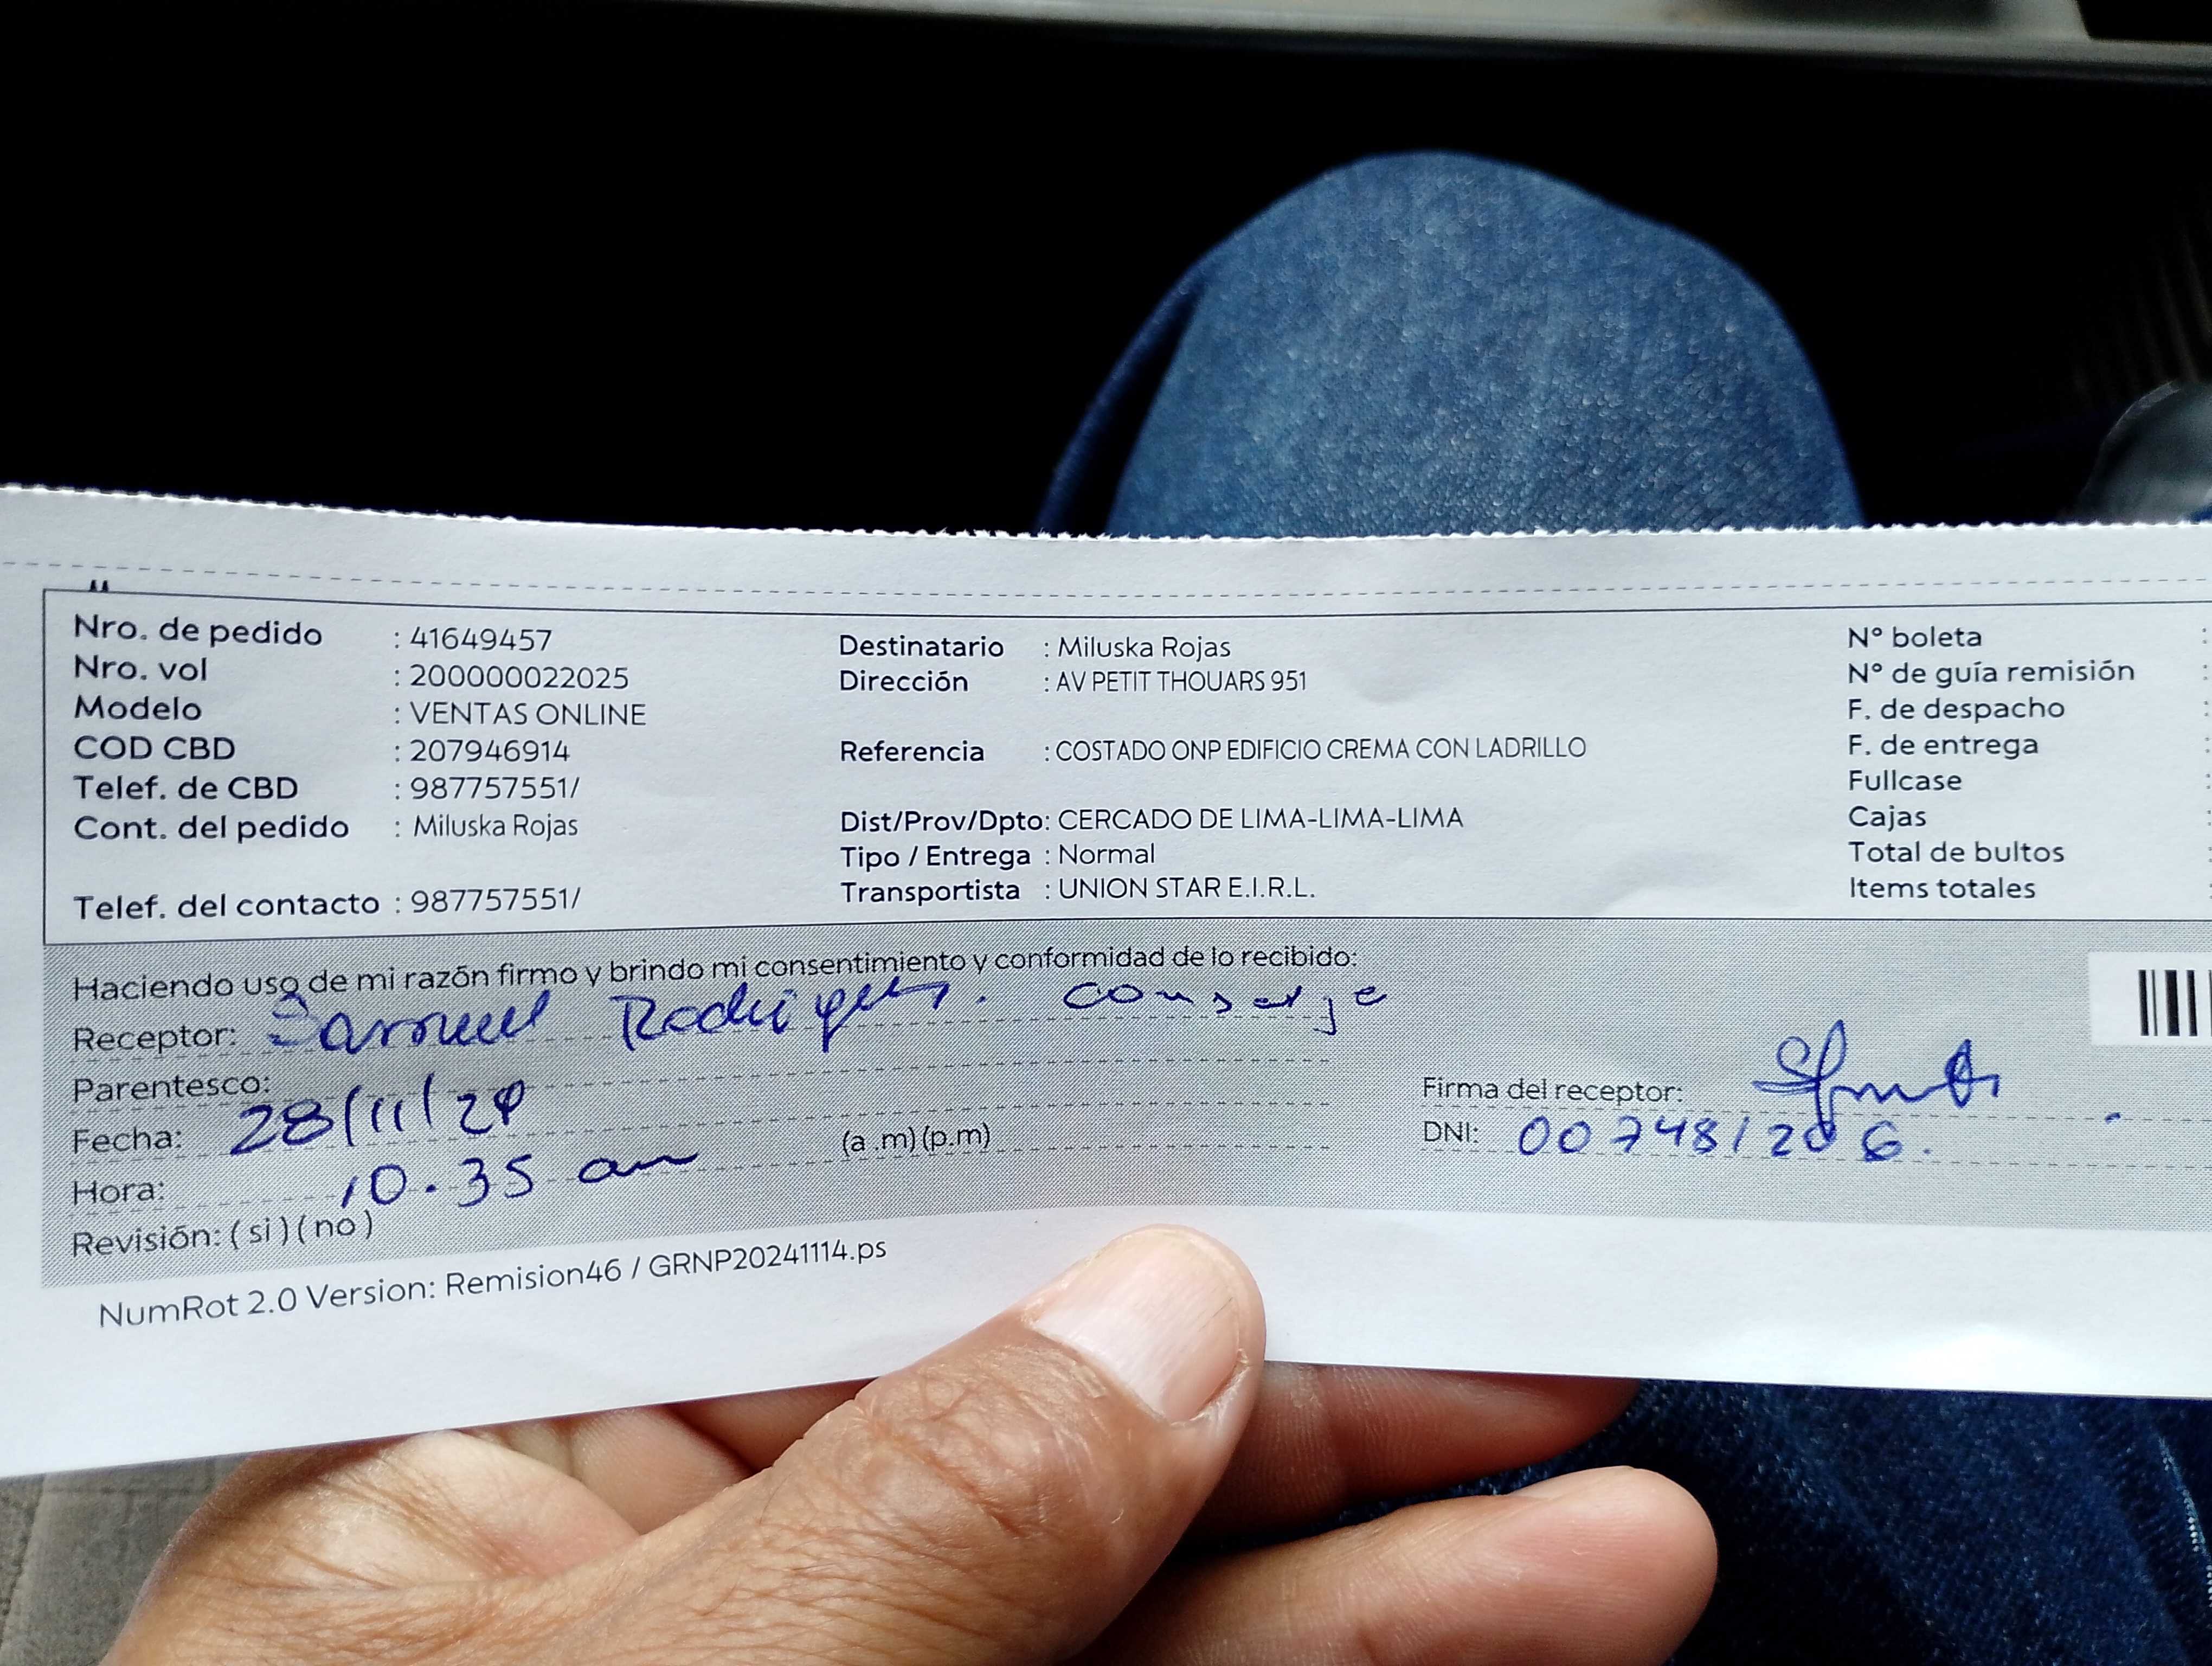 Nro. de pedido : 41649457
Nro. vol : 200000022025
Modelo : VENTAS ONLINE
COD CBD : 207946914
Telef. de CBD : 987757551/
Cont. del pedido : Miluska Rojas
Telef. del contacto : 987757551/
Destinatario : Miluska Rojas
Dirección : AV PETIT THOUARS 951
Referencia : COSTADO ONP EDIFICIO CREMA CON LADRILLO
Dist/Prov/Dpto: CERCADO DE LIMA-LIMA-LIMA
Tipo / Entrega : Normal
Transportista : UNION STAR E.I.R.L.
N° boleta :
N° de guía remisión :
F. de despacho :
F. de entrega :
Fullcase :
Cajas :
Total de bultos :
Items totales :
Haciendo uso de mi razón firmo y brindo mi consentimiento y conformidad de lo recibido:
Receptor: Samuel Rodriguez. conserje
Parentesco:
Fecha: 28/11/24
Hora: 10.35 am (a.m)(p.m)
Revisión: ( si ) ( no )
Firma del receptor:
DNI: 007481206.
NumRot 2.0 Version: Remision46 / GRNP20241114.ps